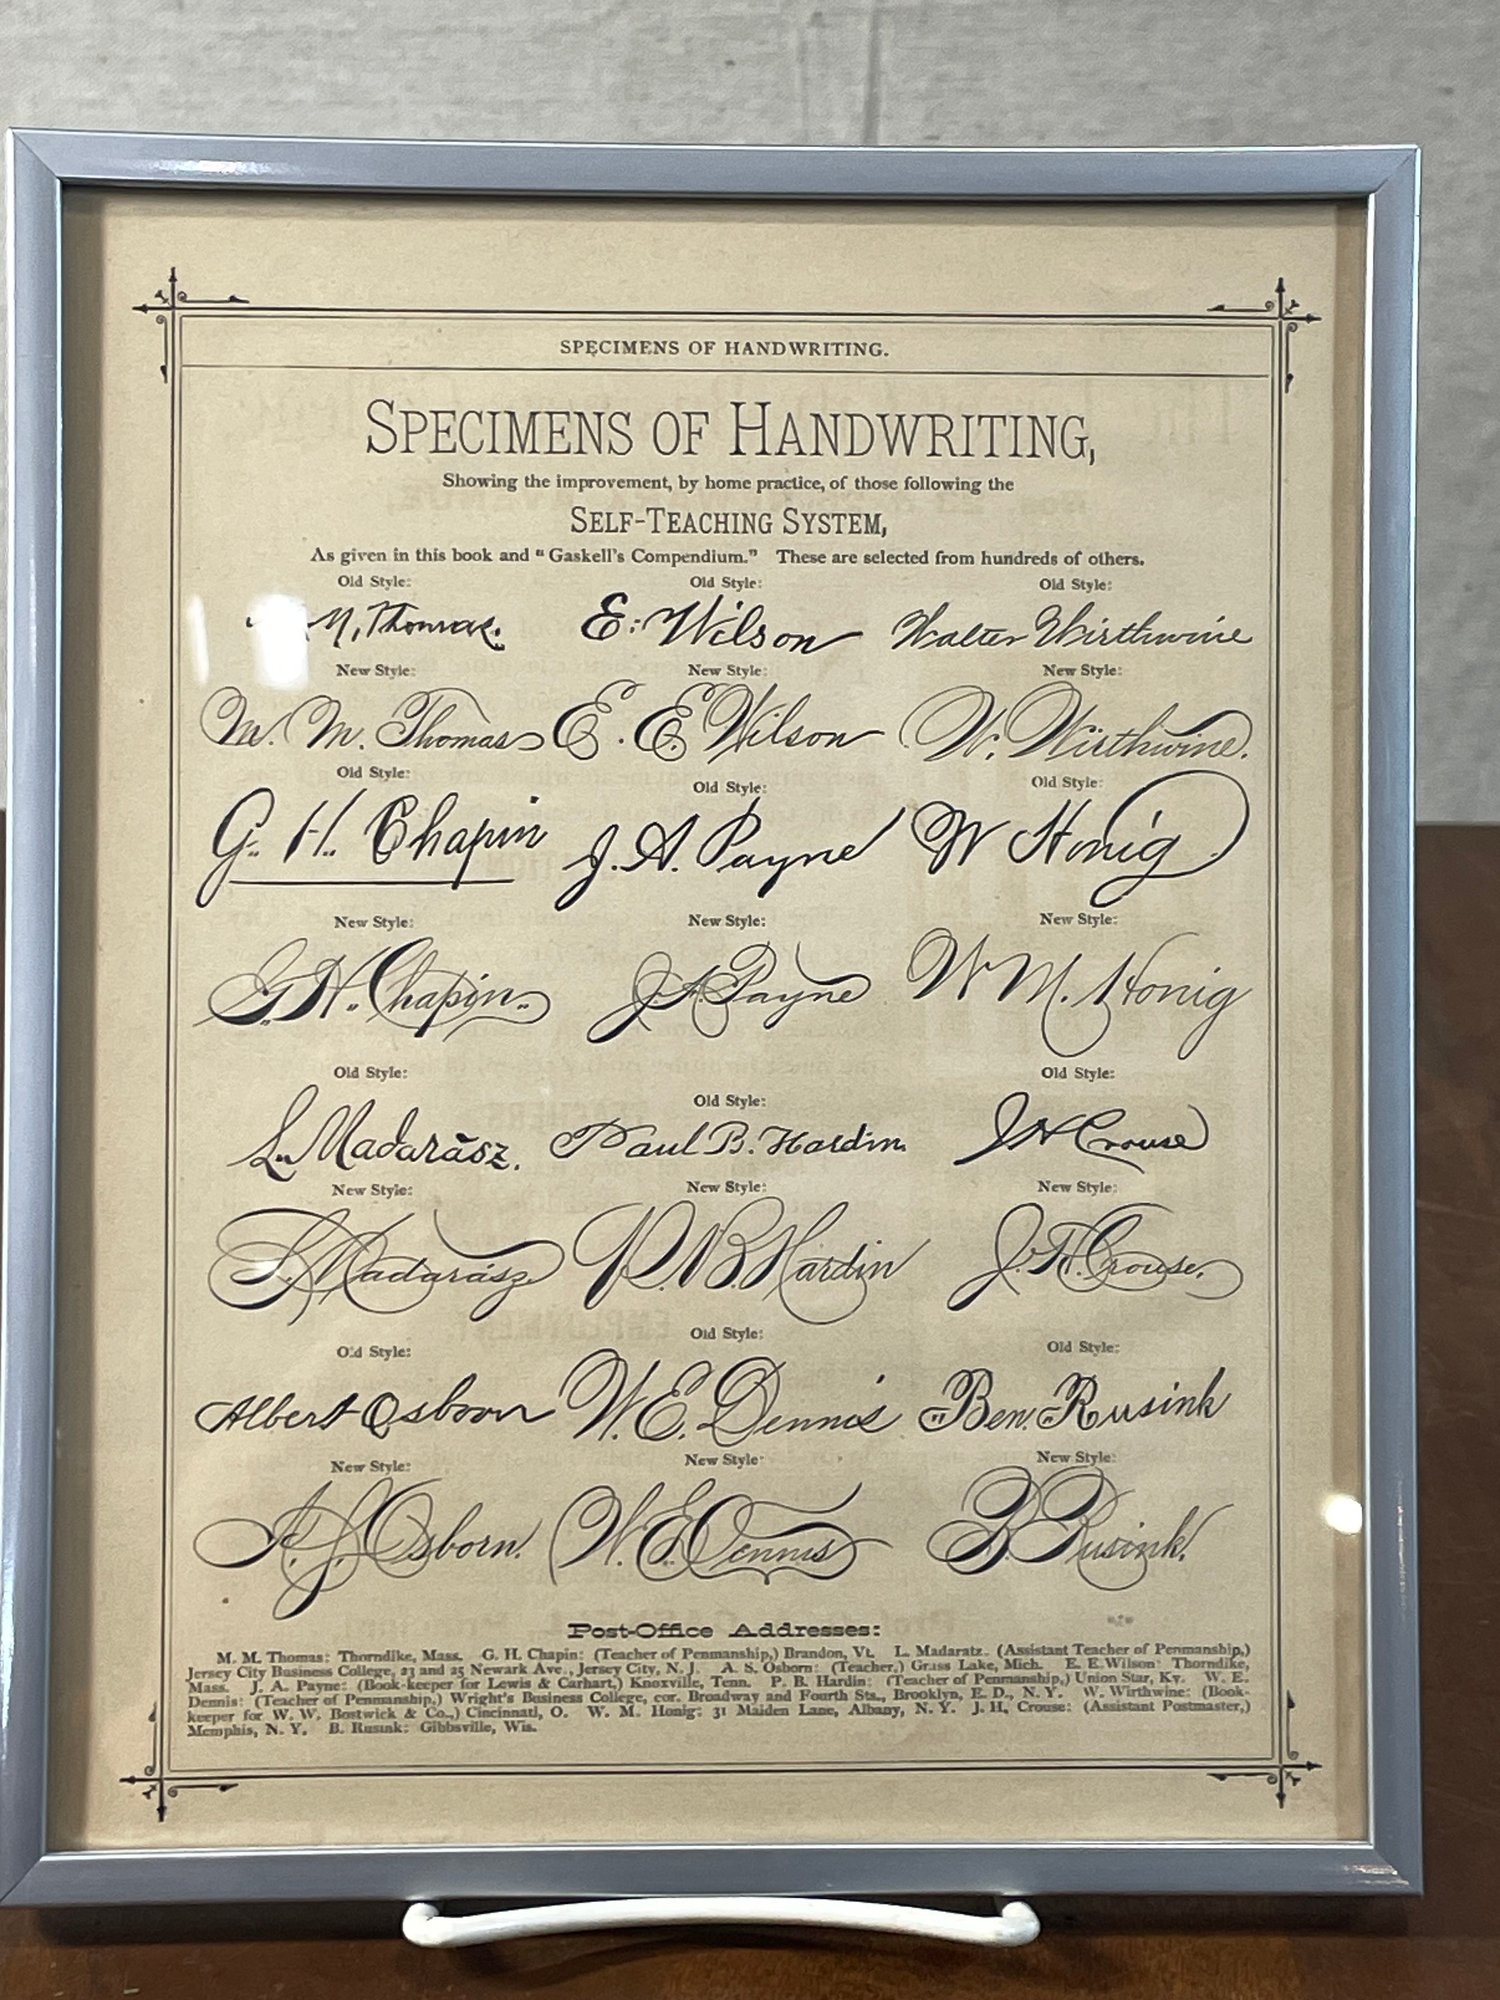 SPECIMENS OF HANDWRITING.
SPECIMENS OF HANDWRITING,
Showing the improvement, by home practice, of those following the
SELF-TEACHING SYSTEM,
As given in this book and "Gaskell's Compendium." These are selected from hundreds of others.
Old Style: Old Style: Old Style:
M. Thomas. E. Wilson Walter Wirthwine
New Style: New Style: New Style:
M. M. Thomas E. E. Wilson W. Wirthwine.
Old Style: Old Style: Old Style:
G. H. Chapin J. A. Payne W Honig
New Style: New Style: New Style:
G. H. Chapin. J. A. Payne W. M. Honig
Old Style: Old Style: Old Style:
L. Madarász. Paul B. Hardin. J H Crouse
New Style: New Style: New Style:
L. Madarász P. B. Hardin J. H. Crouse.
Old Style: Old Style: Old Style:
Albert Osborn W. E. Dennis Ben. Rusink
New Style: New Style: New Style:
A. S. Osborn. W. E. Dennis B. Rusink.
Post-Office Addresses:
M. M. Thomas: Thorndike, Mass. G. H. Chapin: (Teacher of Penmanship,) Brandon, Vt. L. Madaratz. (Assistant Teacher of Penmanship,)
Jersey City Business College, 23 and 25 Newark Ave., Jersey City, N. J. A. S. Osborn: (Teacher,) Grass Lake, Mich. E. E. Wilson: Thorndike,
Mass. J. A. Payne: (Book-keeper for Lewis & Carhart,) Knoxville, Tenn. P. B. Hardin: (Teacher of Penmanship,) Union Star, Ky. W. E.
Dennis: (Teacher of Penmanship,) Wright's Business College, cor. Broadway and Fourth Sts., Brooklyn, E. D., N. Y. W. Wirthwine: (Book-
keeper for W. W. Bostwick & Co.,) Cincinnati, O. W. M. Honig: 31 Maiden Lane, Albany, N. Y. J. H. Crouse: (Assistant Postmaster,)
Memphis, N. Y. B. Rusink: Gibbsville, Wis.